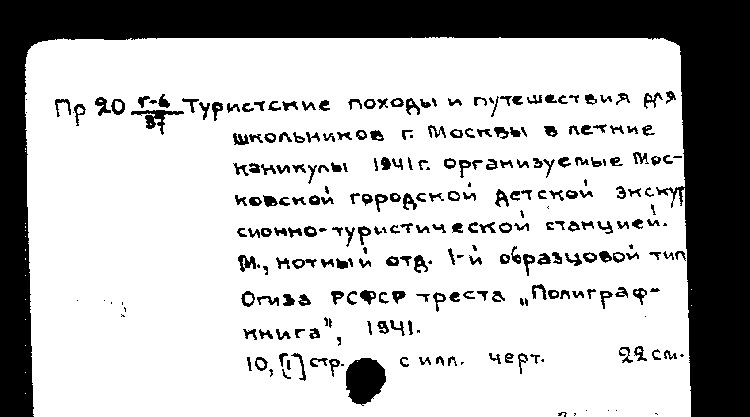 Пр 20 г-6/37 Туристские походы и путешествия для
школьников г. Москвы в летние
каникулы 1941 г. организуемые Мос-
ковской городской детской экскур
сионно-туристической станцией.
М., нотный отд. 1-й образцовой тип
Огиза РСФСР треста „Полиграф-
книга", 1941.
10, [1] стр. с илл. черт. 22 см.